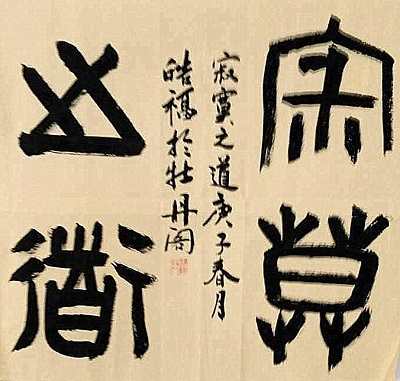 寂寞
之道
寂寞之道庚子春月
皓於牡丹阁